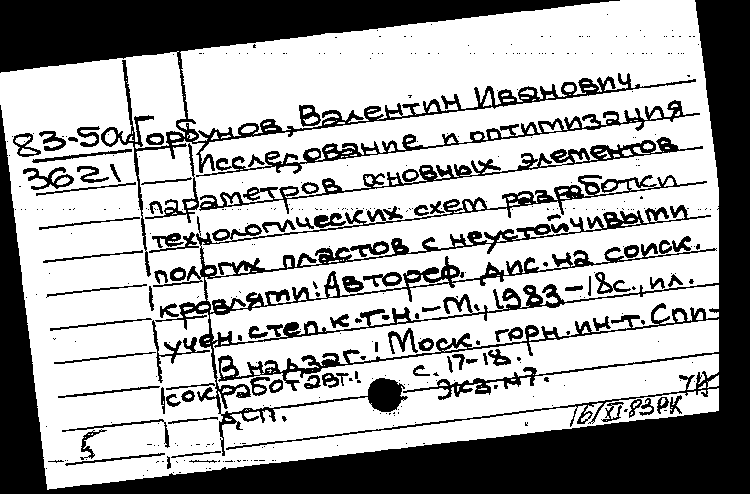 83-50а Горбунов, Валентин Иванович.
3621 Исследование и оптимизация
параметров основных элементов
технологических схем разработки
пологих пластов с неустойчивыми
кровлями: Автореф. дис. на соиск.
учен. степ. к.т.н. - М., 1983 - 18с., ил.
В надзаг.: Моск. горн. ин-т. Спи-
сок работ авт.: с. 17-18.
ДСП. Экз. №7.
5 16/XI-83